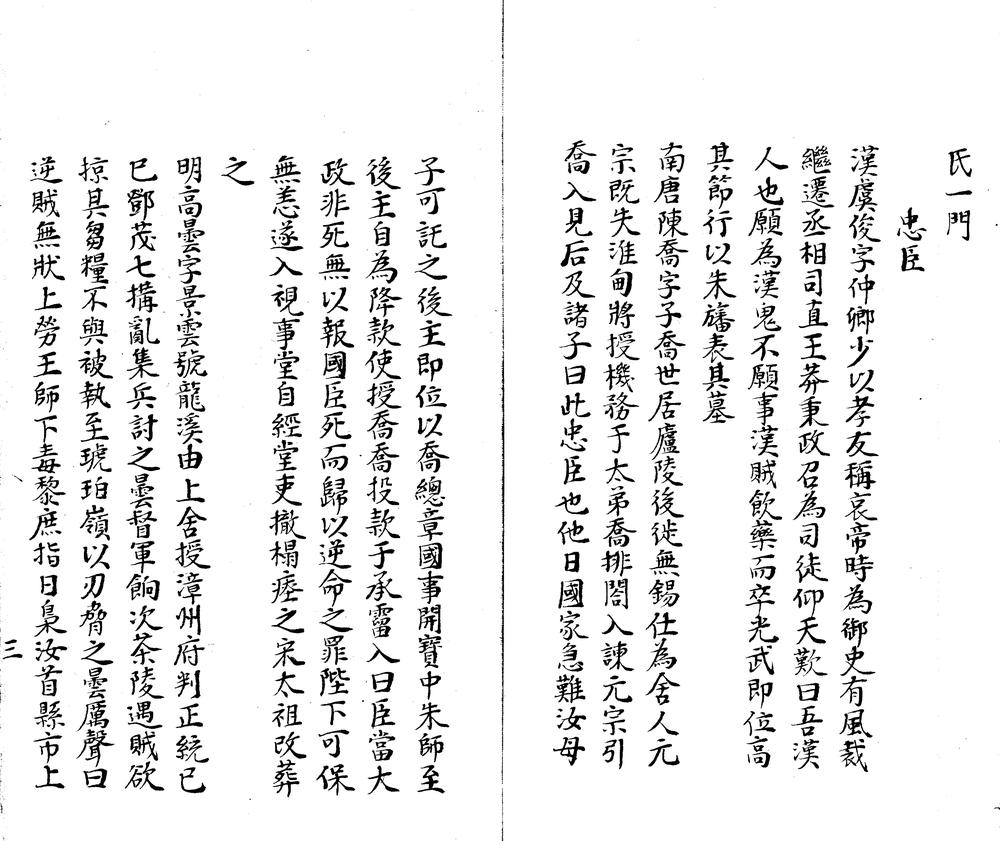 氏一門
忠臣
漢虞俊字仲卿少以孝友稱哀帝時為御史有風裁
繼遷丞相司直王莽秉政召為司徒仰天歎曰吾漢
人也願為漢鬼不願事漢賊飲藥而卒光武即位高
其節行以朱旛表其墓
南唐陳喬字子喬世居廬陵後徙無錫仕為舍人元
宗既失淮甸將授機務于太弟喬排閤入諫元宗引
喬入見后及諸子曰此忠臣也他日國家急難汝母
子可託之後主即位以喬總章國事開寶中朱師至
後主自為降款使授喬喬投款于承霤入曰臣當大
政非死無以報國臣死而歸以逆命之罪陛下可保
無恙遂入視事堂自經堂吏撤榻瘞之宋太祖改葬
之
明高曇字景雲號龍溪由上舍授漳州府判正統己
巳鄧茂七搆亂集兵討之曇督軍餉次茶陵遇賊欲
掠其芻糧不與被執至琥珀嶺以刃脅之曇厲聲曰
逆賊無狀上勞王師下毒黎庶指日梟汝首縣市上
三